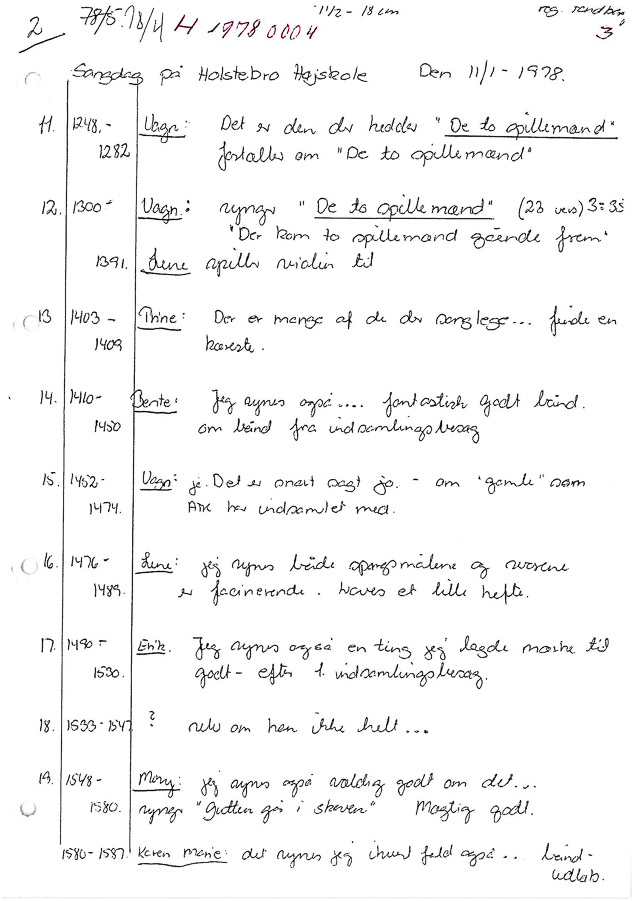 2 78/5. 78/4 H 1978 0004 11 1/2 - 18 cm reg.
3
Sangdag på Holstebro Højskole Den 11/1 - 1978.
11. 1248.- Vagn: Det er den der hedder "De to spillemænd"
1282 fortæller om "De to spillemænd"
12. 1300- Vagn: synger "De to spillemænd" (23 vers) 3=35
"Der kom to spillemænd gående frem"
1391. Lene spiller violin til
13 1403 - Thine: Der er mange af de der sanglege... finde en
1409 kæreste.
14. 1410- Bente: Jeg synes også.... fantastisk godt bånd.
1450 om bånd fra indsamlingsbesøg
15. 1452- Vagn: ja. Det er snart sagt jo. - om "gamle" som
1474. ATK har indsamlet med.
16. 1476- Lene: jeg synes både spørgsmålene og svarene
1489. er facinerende. laves et lille hefte.
17. 1490- Erik. Jeg synes også en ting jeg lagde mærke til
1530. godt - efter 1. indsamlingsbesøg.
18. 1533-1547 ? selv om han ikke helt...
19. 1548- Mary: jeg synes også vældig godt om det...
1580. synger "Gutten gå i skoven" Mægtig godt.
1580-1587. Karen Marie: det synes jeg i hvert fald også... bånd-
udløb.